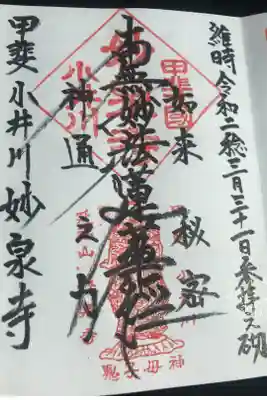 維時令和二稔三月三十一日参拝之砌
如来秘密
南無妙法蓮華経
神通之力
甲斐小井川妙泉寺
甲斐國
小井川
鬼子母神